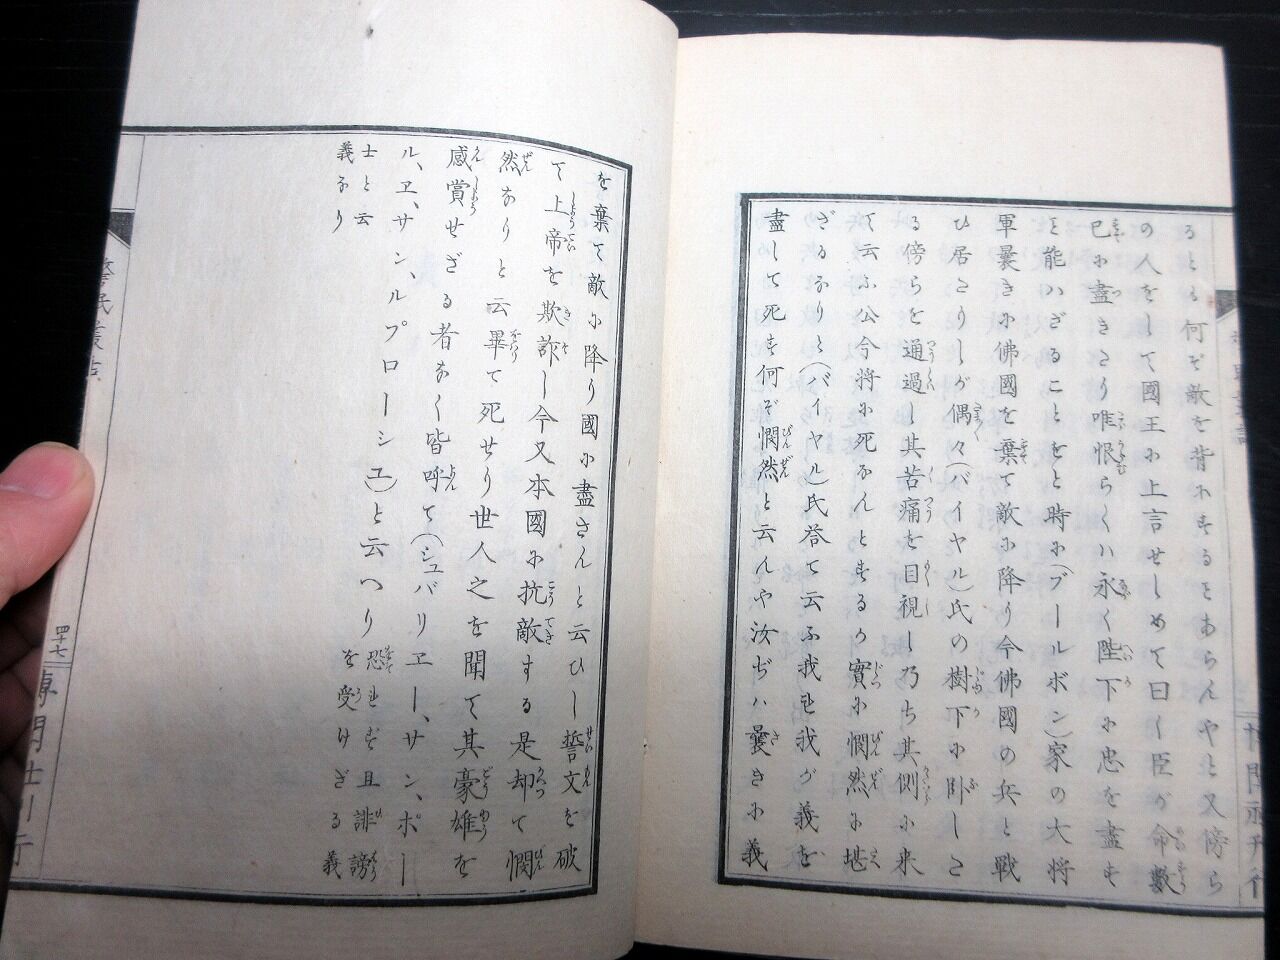 るとも何ぞ敵を背にするとあらんやと又傍ら
の人をして國王に上言せしめて曰く臣が命數
已に盡きたり唯恨らくハ永く陛下に忠を盡す
を能ハざることをと時に(ブールボン)家の大将
軍曩きに佛國を棄て敵に降り今佛國の兵と戰
ひ居たりしが偶々(バイヤル)氏の樹下に卧した
る傍らを通過し其苦痛を目視し乃ち其側に来
て云ふ公今將に死なんとするか實に憫然に堪
ざるなりと(バイヤル)氏答て云ふ我も我が義を
盡して死す何ぞ憫然と云んや汝ぢハ曩きに義
を棄て敵に降り國に盡さんと云ひし誓文を破
て上帝を欺詐し今又本國に抗敵する是却て憫
然なりと云畢て死せり世人之を聞て其豪雄を
感賞せざる者なく皆呼て(シュバリエー、サン、ポー
ル、ヱ、サン、ルプローシユ)と云へり
恐もず且誹謗
を受けざる義
士と云
義なり
四十七